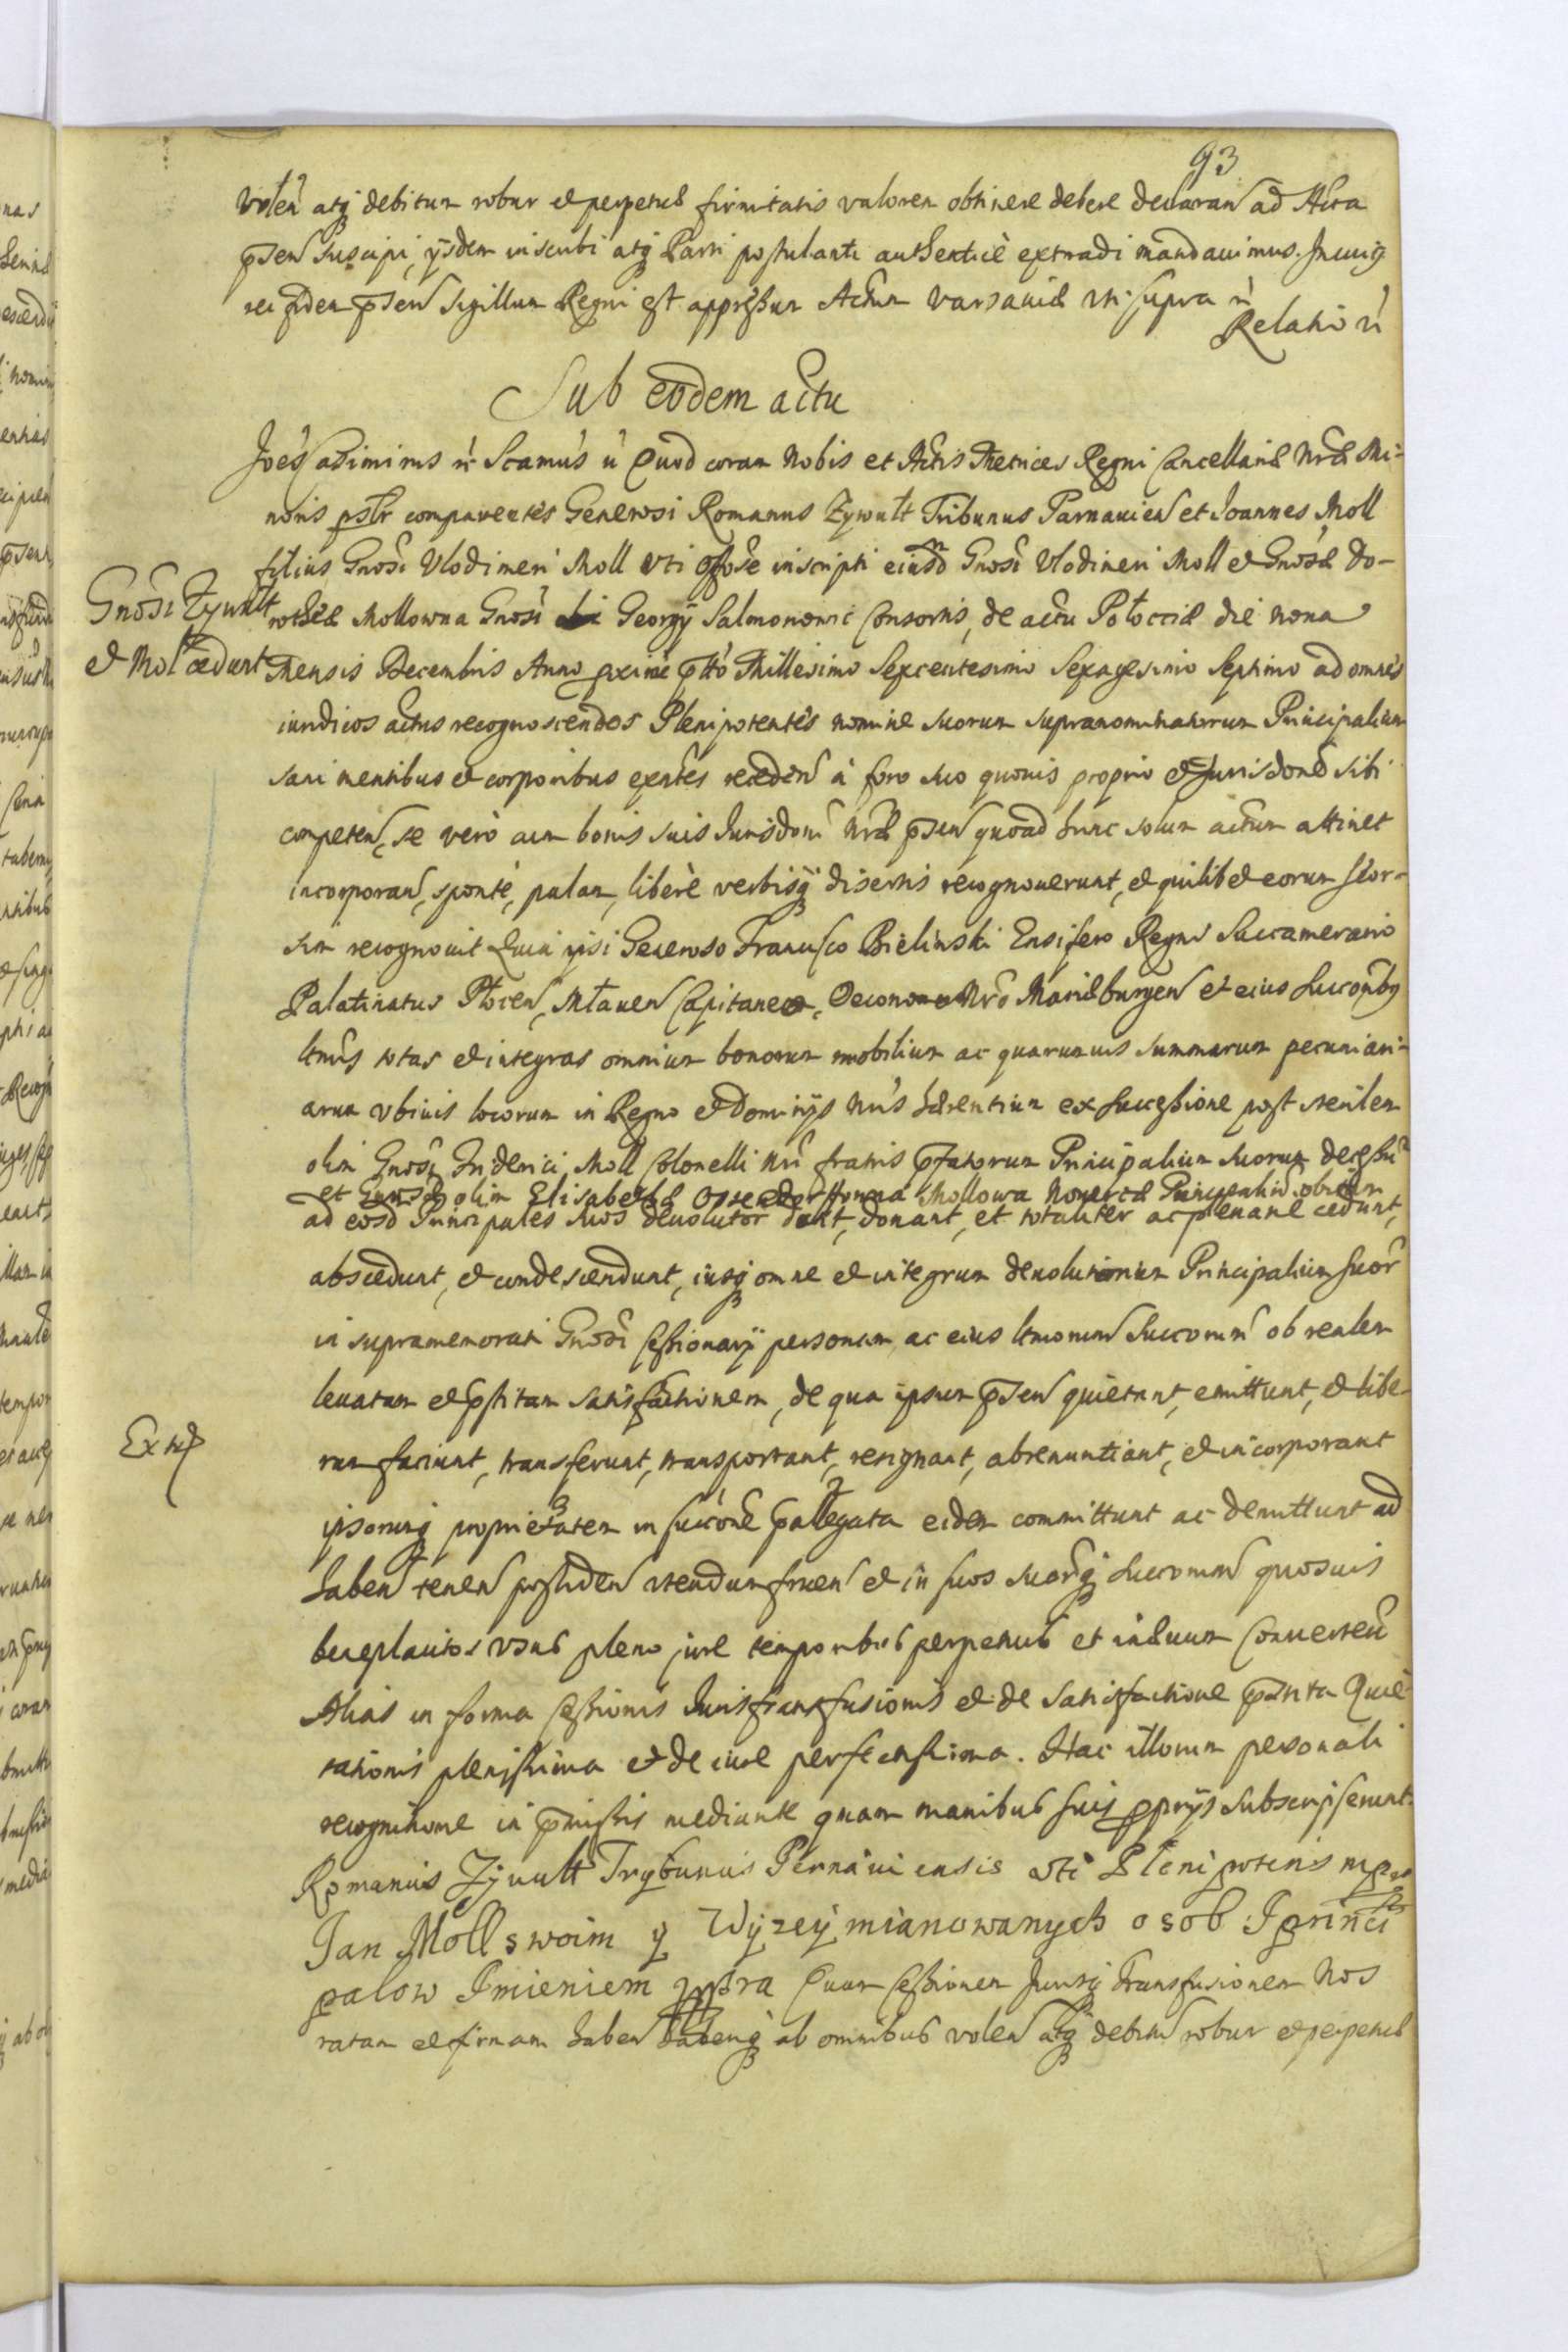 93
volen̄ atq̨ debitum robur et perpetuæ firmitatis valorem obtinere debere declaran̄ ad Acta
p̄sen̄ suscipi, ÿsdem inscribi atq̨ Parti postulanti authenticè extradi mandavimus. In cuiq̨
rei fidem p̄sen̄ Sigillum Regni est appressum Actum Varsaviæ uti supra
Relatio
Sub eodem actu
Joẽs Casimirus Scamus Quod coram Nobis et Actis Metrices Regni Cancellariæ Nræ Mi-
noris pslr comparentes Generosi Romanus Zywult Tribunus Parnavien̄ et Joannes Moll
filius Gnosi Vlodimeri Moll uti inscripti eiusd Gnosi Vlodimeri Moll et Gnosæ Do-
Gnosi Zywult
et Mol cedunt
rotheæ Mollowna Gnosi Georgÿ Salmonowic Consortis, de actu Potocciæ die nona
Mensis Decembris Anno Millesimo Sexcentesimo Sexagesimo Septimo ad omnes
iuridicos actus recognoscendos Plenipotentes nomine suorum supranominatorum Principalium
sani mentibus et corporibus exñtes receden̄ à foro suo quovis proprio et Jurisdone sibi
competen̄, se verò cum bonis suis Jurisdoni Nræ p̄sen̄ quoad hunc solum actum attinet
incorporan̄, spontè, palam, liberè verbisq̨ disertis recognoverunt, et quilibet eorum seor-
sim recognovit Quia ipsi Generoso Francisco Bielinski Ensifero Regni Succamerario
Palatinatus Plocen̄, Mlaven̄ Capitaneo, Oeconomo Nro Mariæburgen̄ et eius Succoribq̨
ltmis totas et integras omnium bonorum mobilium ac quarumvis summarum pecuniari-
arum ubivis locorum in Regno et Dominijs Nris hærentium ex successione post sterilem
olim Gnosi Friderici Moll Colonelli Nri fratris p̄fatorum Principalium suorum decessū
et Gnosæ olim Elisabethæ Mollowa Novercæ Principalium
ad eosd Principales suos devolutor dant, donant, et totaliter ac plenarie cedunt,
abscedunt, et condescendunt, iusq̨ omne et integrum devolutorium Principalium suor̄
in supramemorati Gnosi Cessionarÿ personam ac eius ltmorum Succorum ob realem
levatam et p̄stitam satisfactionem, de qua ipsum p̄sen̄ quietant, emittunt, et libe-
Extr
rum faciunt, transferunt, transportant, resignant, abrenuntiant, et incorporant
ipsorumq̨ proprietatem in succone p̄allegata eidem committunt ac demittunt ad
haben̄ tenen̄ possiden̄ utendum fruen̄ et in suos suorq̨ Succorum quosvis
beneplacitos usus pleno jure temporibus perpetuis et in ævum Converten̄
Alias in forma Cessionis Juris transfusionis et de satisfactione Quie-
tationis plenissima et de iure perfectissima. Hac illorum personali
recognitione in p̄missis mediante quam manibus suis p̄prijs subscripserunt.
Romanus Zywult Trybunus Pernaviensis uti Plenipotens mp
Jan Moll swoim y Wyzey mianowanych osob I princi
palow Imieniem Quam Cessionem Jurisq̨ transfusionem Nos
ratam et firmam haben̄ ab omnibus volen̄ atq̨ debitum robur et perpetuæ